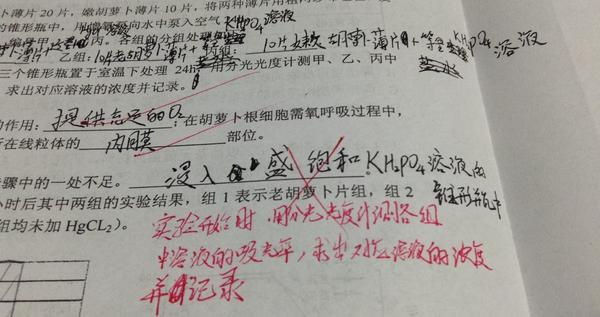 卜薄片20片，嫩胡萝卜薄片10片，将两种薄片用
的锥形瓶中，用增氧泵向水中泵入空气 KH₂PO₄溶液
乙组：10片老胡萝卜薄片+ 丙组：10片嫩胡萝卜薄片+等量KH₂PO₄溶液
三个锥形瓶置于室温下处理24h 用分光光度计测甲、乙、丙中
求出对应溶液的浓度并记录。
的作用：提供充足的O₂；在胡萝卜根细胞需氧呼吸过程中，
所在线粒体的 内膜 部位。
骤中的一处不足。浸入 盛饱和KH₂PO₄溶液的
锥形瓶中
小时后其中两组的实验结果，组1表示老胡萝卜片组，组2
组均未加HgCL₂）。
实验开始时 用分光光度计测各组
中溶液的吸光率，求出对应溶液的浓度
并记录